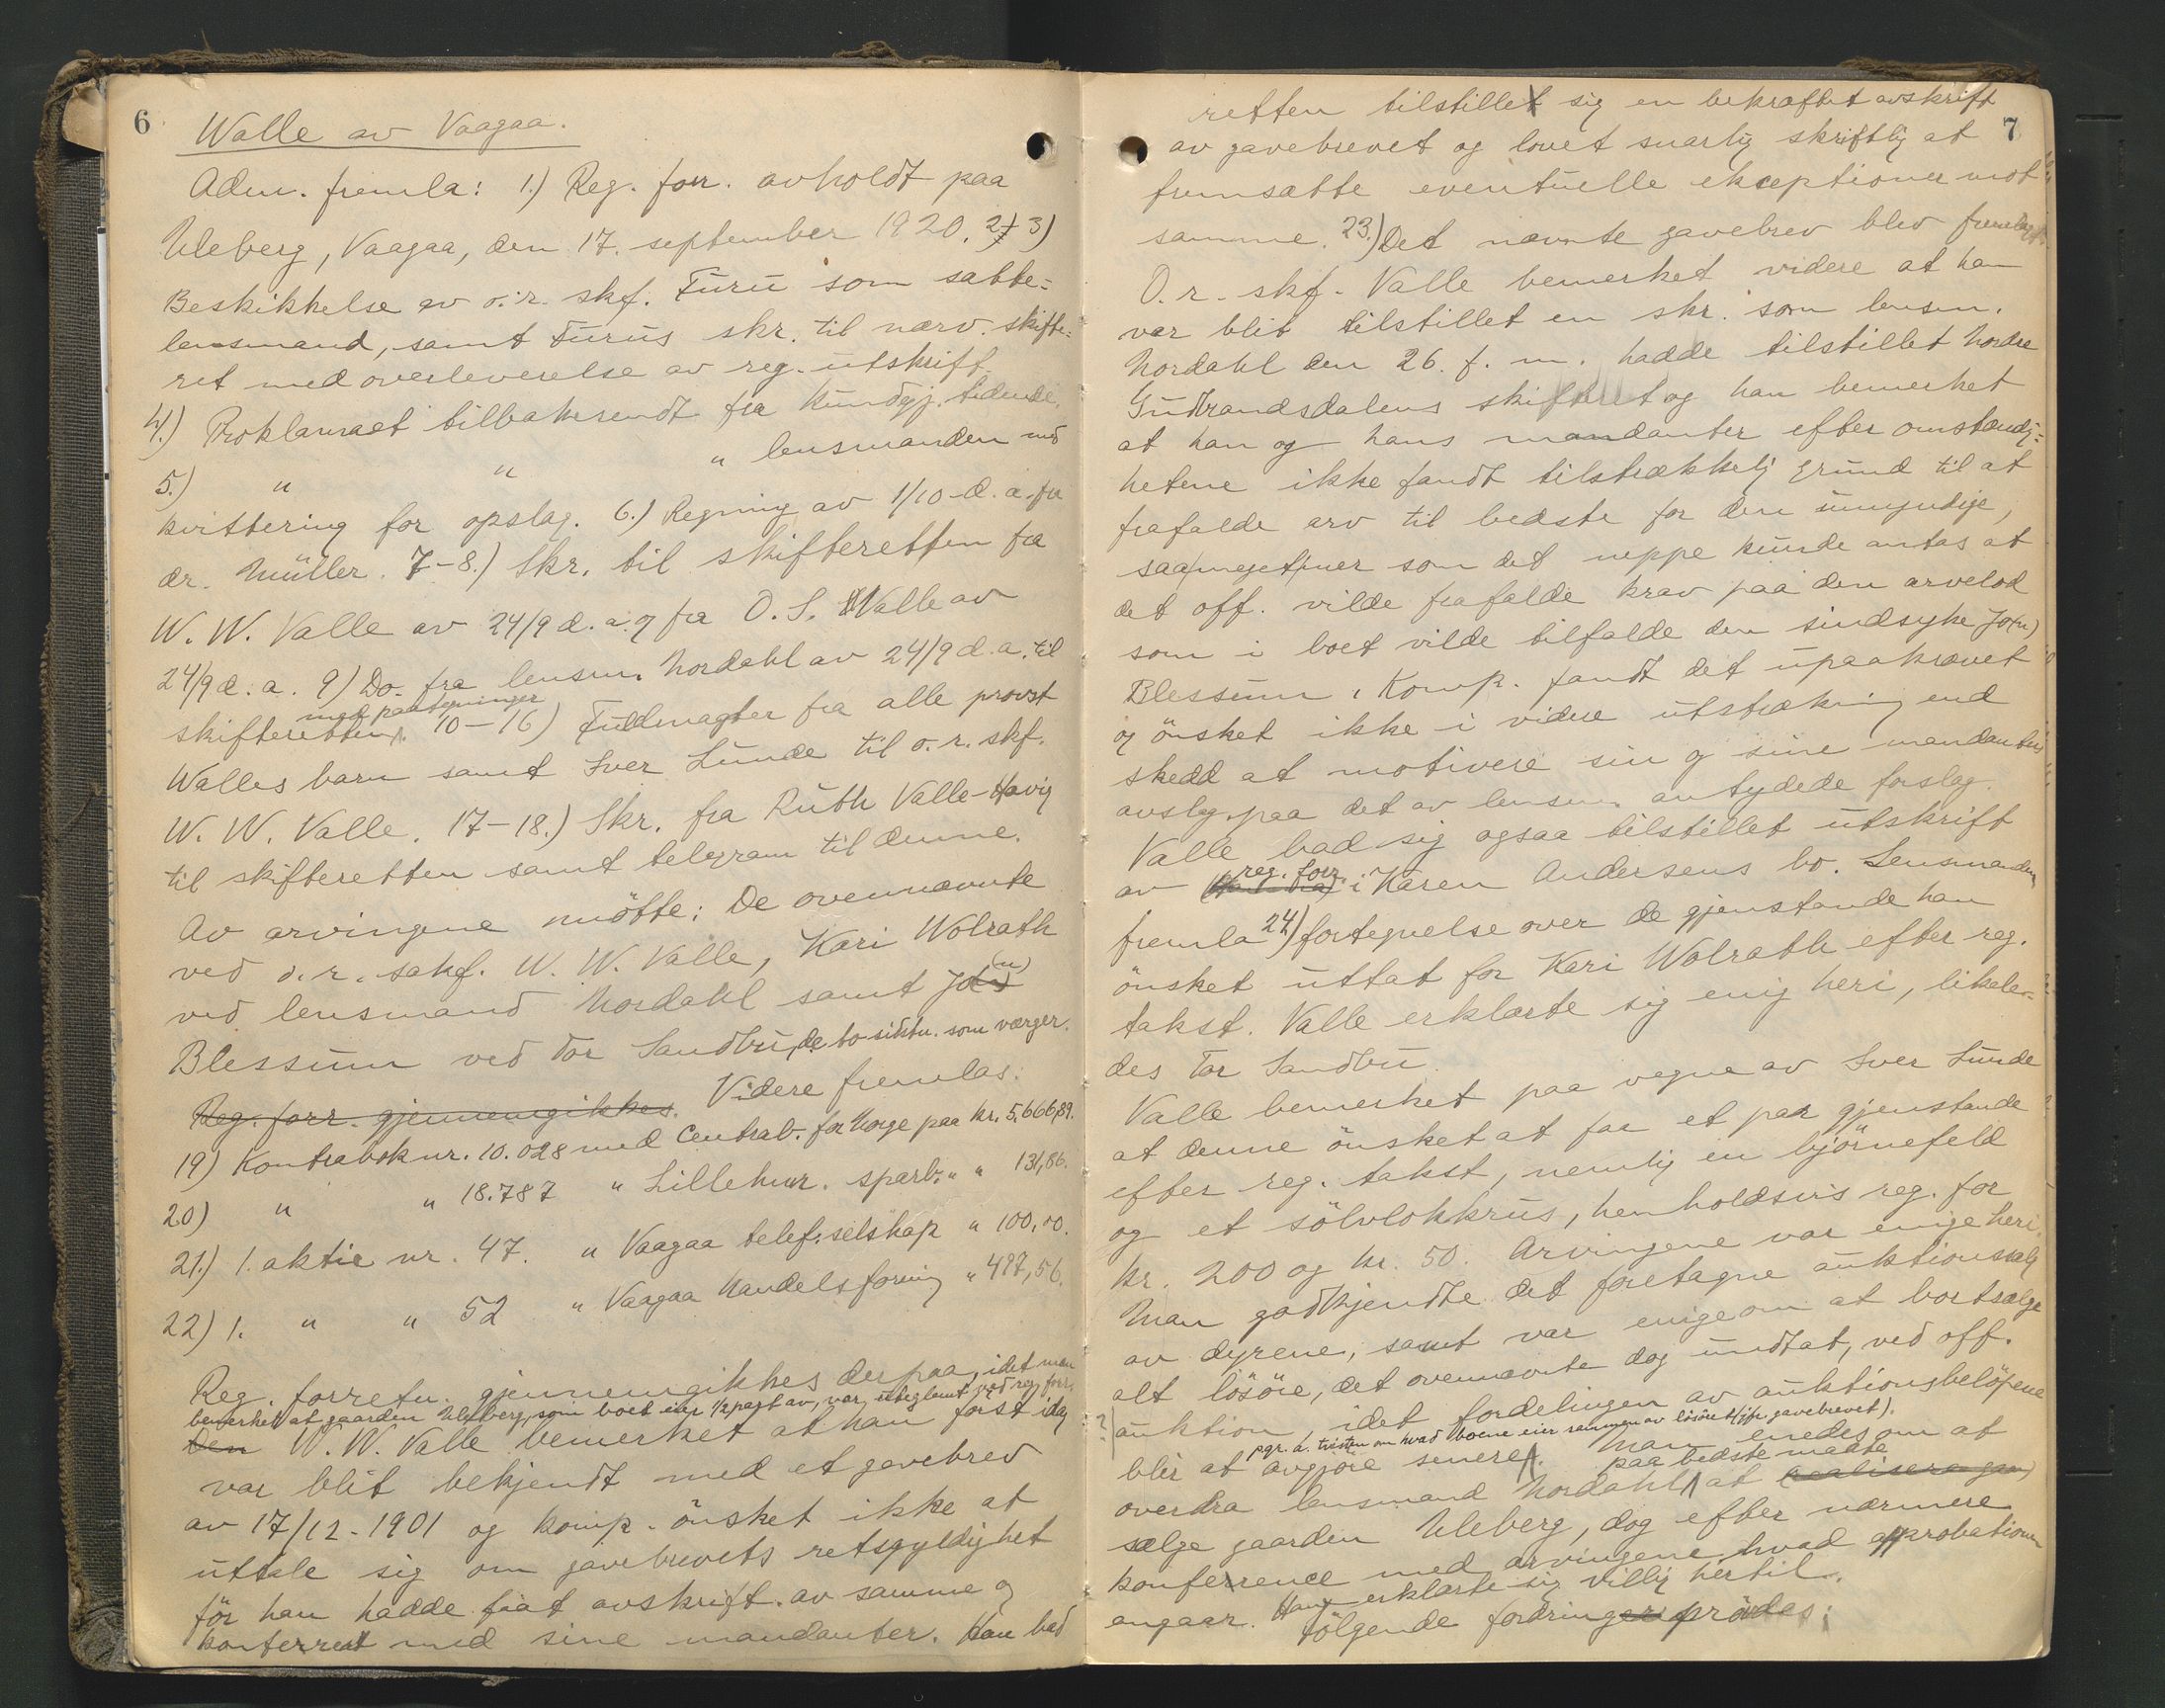 6
Walle av Vaagaa.
Adm. fremla: 1.) Reg. forr. avholdt paa
Uleberg, Vaagaa, den 17. september 1920. 2) 3)
Beskikkelse av o.r. skf. Furu som sætte-
lensmand, samt Furus skr. til nærv. skifte-
ret med overleverelse av reg. utskrift.
4.) Proklamaet tilbakesendt fra Kundgj. tidende.
5.) " " " lensmanden med
kvittering for opslag. 6.) Regning av 1/10 d. a. fra
dr. Müller. 7-8.) Skr. til skifteretten fra
W. W. Valle av 24/9 d. a. og fra O. S. Valle av
24/9 d. a. 9) Do. fra lensm. Nordahl av 24/9 d. a. til
med paategninger
skifteretten. 10-16) Fuldmagter fra alle provst
Walles barn samt Iver Lunde til o. r. skf.
W. W. Valle. 17-18.) Skr. fra Ruth Valle-Høvig
til skifteretten samt telegram til denne.
Av arvingene mötte: De ovennævnte
ved o. r. sakf. W. W. Valle, Kari Wolrath
ved lensmand Nordahl samt Jo(n)
Blessum ved Tor Sandbu, de to sidstn. som værger.
Reg. forr. gjennemgikkes. Videre fremlas:
19) Kontrabok nr. 10.028 med Centralb. for Norge paa kr. 5,666,89.
20) " " 18.787 " Lillehmr. sparb. " " 131,86.
21.) 1. aktie nr. 47. " Vaagaa telef. selskap " 100,00.
22) 1. " " 52 " Vaagaa Handelsforening " 497,56.
Reg. forretn. gjennemgikkes derpaa, idet man
bemerket at gaarden Uleberg, som boet eier 1/2 part av, var uteglemt ved reg. forr.
Den W. W. Valle bemerket at han först idag
var blit bekjendt med et gavebrev
av 17/12-1901 og komp. önsket ikke at
uttale sig om gavebrevets retsgyldighet
för han hadde faat avskrift av samme og
konferert med sine mandanter. Han bad
7
retten tilstillet sig en bekræftet avskrift
av gavebrevet og lovet snarlig skriftlig at
fremsætte eventuelle ekceptioner mot
samme. 23.) Det nævnte gavebrev blev fremlagt.
O. r. skf. Valle bemerket videre at han
var blit tilstillet en skr. som lensm.
Nordahl den 26. f. m. hadde tilstillet Nordre
Gudbrandsdalens skifteret og han bemerket
at han og hans mandanter efter omstændig-
hetene ikke fandt tilstrækkelig grund til at
frafalde arv til bedste for den umyndige,
saa meget mer som det neppe kunde antas at
det off. vilde frafalde krav paa den arvelod
som i boet vilde tilfalde den sindsyke Jo(n)
Blessum. Komp. fandt det upaakrævet
og önsket ikke i videre utstrækning end
skedd at motivere sin og sine mandanters
avslag paa det av lensm. antydede forslag.
Valle bad sig ogsaa tilstillet utskrift
reg. forr.
av i Karen Andersens bo. Lensmanden
fremla 24) fortegnelse over de gjenstande han
önsket uttat for Kari Wolrath efter reg.
takst. Valle erklærte sig enig heri, likele-
des Tor Sandbu.
Valle bemerket paa vegne av Iver Lunde
at denne önsket at faa et par gjenstande
efter reg. takst, nemlig en björnefeld
og et sölvlokkrus, henholdsvis reg. for
kr. 200 og kr. 50. Arvingene var enige heri.
Man godkjendte det foretagne auktionssalg
av dyrene, samt var enige om at bortsælge
alt lösöre, det ovennævnte dog undtat, ved off.
auktion, idet fordelingen av auktionsbelöpene
pgr. a. tvisten om hvad boene eier sammen av lösöret (jfr. gavebrevet).
blir at avgjöre senere. Man enedes om at
paa bedste maate
overdra lensmand Nordahl at (realisere gaa)
sælge gaarden Uleberg, dog efter nærmere
konference med arvingene hvad approbationen
angaar. Han erklærte sig villig hertil.
Fölgende fordringer prövdes: